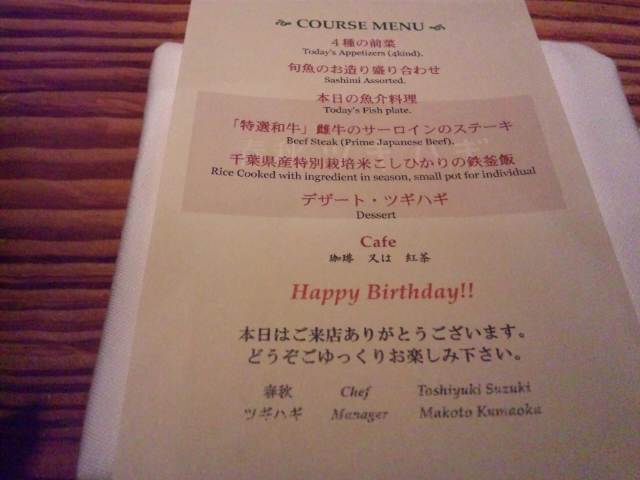 COURSE MENU
4種の前菜
Today's Appetizers (4kind).
旬魚のお造り盛り合わせ
Sashimi Assorted.
本日の魚介料理
Today's Fish plate.
「特選和牛」雌牛のサーロインのステーキ
Beef Steak (Prime Japanese Beef).
千葉県産特別栽培米こしひかりの鉄釜飯
Rice Cooked with ingredient in season, small pot for individual
デザート・ツギハギ
Dessert
Cafe
珈琲 又は 紅茶
Happy Birthday!!
本日はご来店ありがとうございます。
どうぞごゆっくりお楽しみ下さい。
春秋 Chef Toshiyuki Suzuki
ツギハギ Manager Makoto Kumaoka